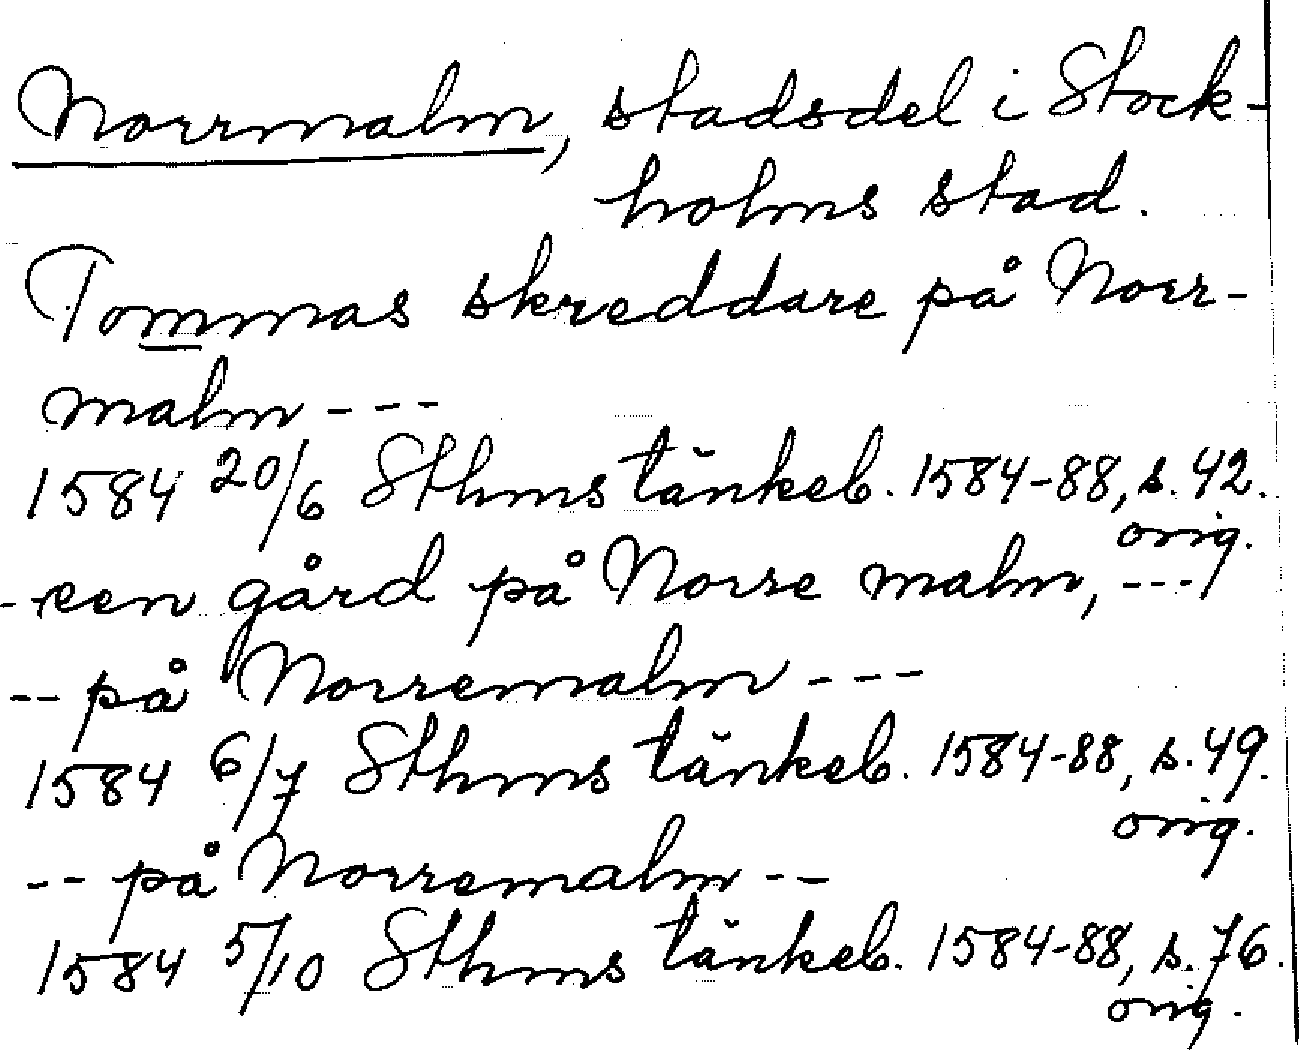 Norrmalm, stadsdel i Stock-
holms stad.
Tommas skreddare på Norr-
malm ---
1584 20/6 Sthms tänkeb. 1584-88, s. 42.
orig.
- een gård på Norre malm, ---
-- på Norremalm ---
1584 6/7 Sthms tänkeb. 1584-88, s. 49.
orig.
-- på Norremalm --
1584 5/10 Sthms tänkeb. 1584-88, s. 76.
orig.